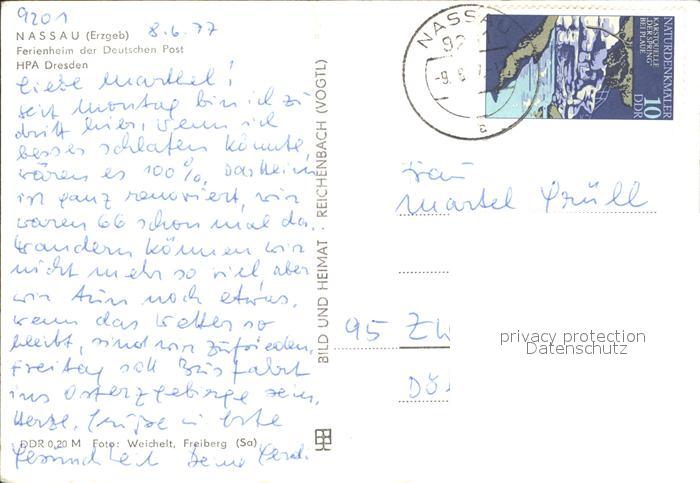 9201
NASSAU (Erzgeb) 8.6.77
Ferienheim der Deutschen Post
HPA Dresden
Liebe Martel!
seit Montag bin ich zu
dritt hier, wenn ich
besser schlafen könnte,
wären es 100%, Das Heim
ist ganz renoviert, wir
waren 66 schon mal da.
Wandern können wir
nicht mehr so viel aber
wir tun noch etwas.
Wenn das Wetter so
bleibt, sind wir zufrieden.
Freitag soll Busfahrt
ins Osterzgebirge sein.
Herzl. Grüße u. Gute
DDR 0,20 M Foto: Weichelt, Freiberg (Sa)
Gesundheit Deine
BILD UND HEIMAT · REICHENBACH (VOGTL)
NASSAU
92
-9.6.7
a
NATURDENKMÄLER
KARSTQUELLE
DER SPRING
BEI PLAUE
10
DDR
Frau
Martel
95 ZW
privacy protection
Datenschutz